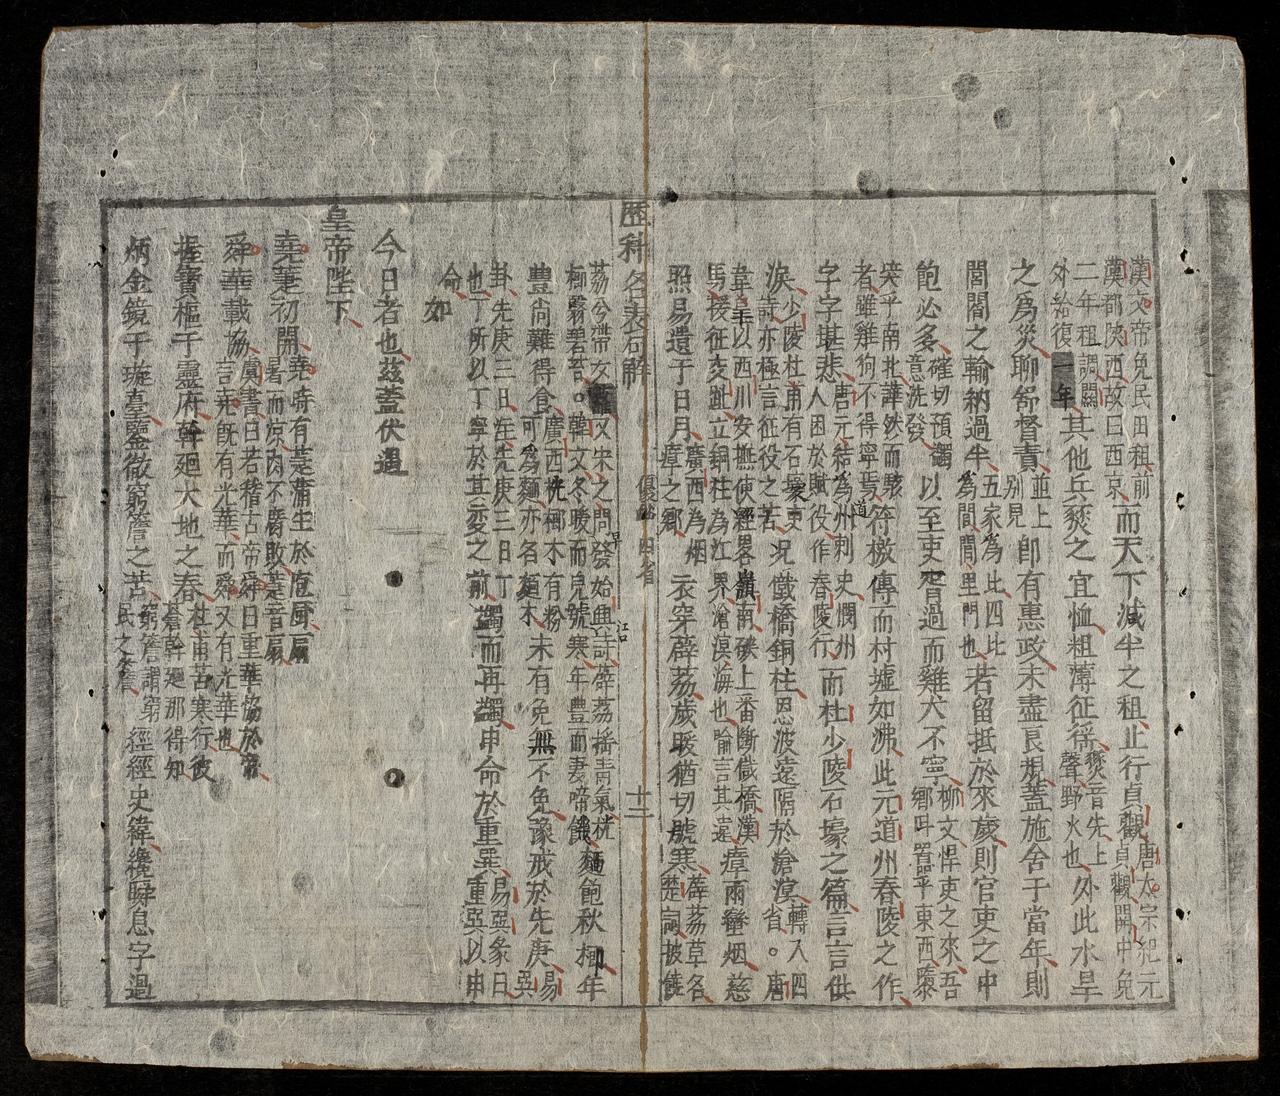 漢文帝免民田租前
漢都陝西故曰西京
而天下減半之租止行貞觀
唐太宗紀元
貞觀關中免
二年租調關
外給復一年
其他兵燹之宜恤租薄征徭
燹音先上
聲野火也
外此水旱
之為災聊舒督責
並上
別見
即有惠政未盡良規蓋施舍于當年則
閭閻之輸納過半
五家為比四比
為閭閭里門也
若留抵於來歲則官吏之中
飽必多
確切預蠲
意洗發
以至吏胥過而雞犬不寧
柳文悍吏之來吾
鄉叫囂乎東西隳
突乎南北譁然而駭
者雖雞狗不得寧焉
符檄傳而村墟如沸此元道州舂陵之作
字字堪悲
唐元結為道州刺史憫州
人困於賦役作舂陵行
而杜少陵石壕之篇言言供
淚
少陵杜甫有石壕吏
詩亦極言征役之苦
況儂橋銅柱恩波遠隔於滄溟
轉入四
省。唐
韋皋以西川安撫使經畧嶺南
馬援征交趾立銅柱為江界滄溟海也喻言其遠
瘴雨蠻烟慈
照易遺于日月
廣西為烟
瘴之鄉
衣穿薜荔歲暖猶切號寒
薜荔草名
楚詞披薜
荔兮帶女蘿又宋之問早發始興江口詩薜荔搖青氣桄
榔翳碧苔。韓文冬暖而兒號寒年豐而妻啼饑
麵飽秋榔年
豐尚難得食
廣西桄榔木有粉
可為麵亦名麵木
未有免無不免豫戒於先庚
易巽
卦先庚三日
後庚三日丁
也丁所以丁寧於其變之前
蠲而再蠲申命於重巽
易巽彖曰
重巽以申
命
如
今日者也茲蓋伏遇
皇帝陛下
堯蓂初開
堯時有蓂莆生於庖厨扇
暑而涼肉不腐敗蓂音扇
舜華載協
虞書曰若稽古帝舜曰重華協於帝
言堯既有光華而舜又有光華也
握寶樞于靈府幹廻大地之春
杜甫苦寒行彼
蒼幹廻那得知
炳金鏡于璇臺鑒徹窮簷之苦
窮簷謂窮
民之簷
經經史緯纔瞬息字過
歷科名表
優 四省
十二